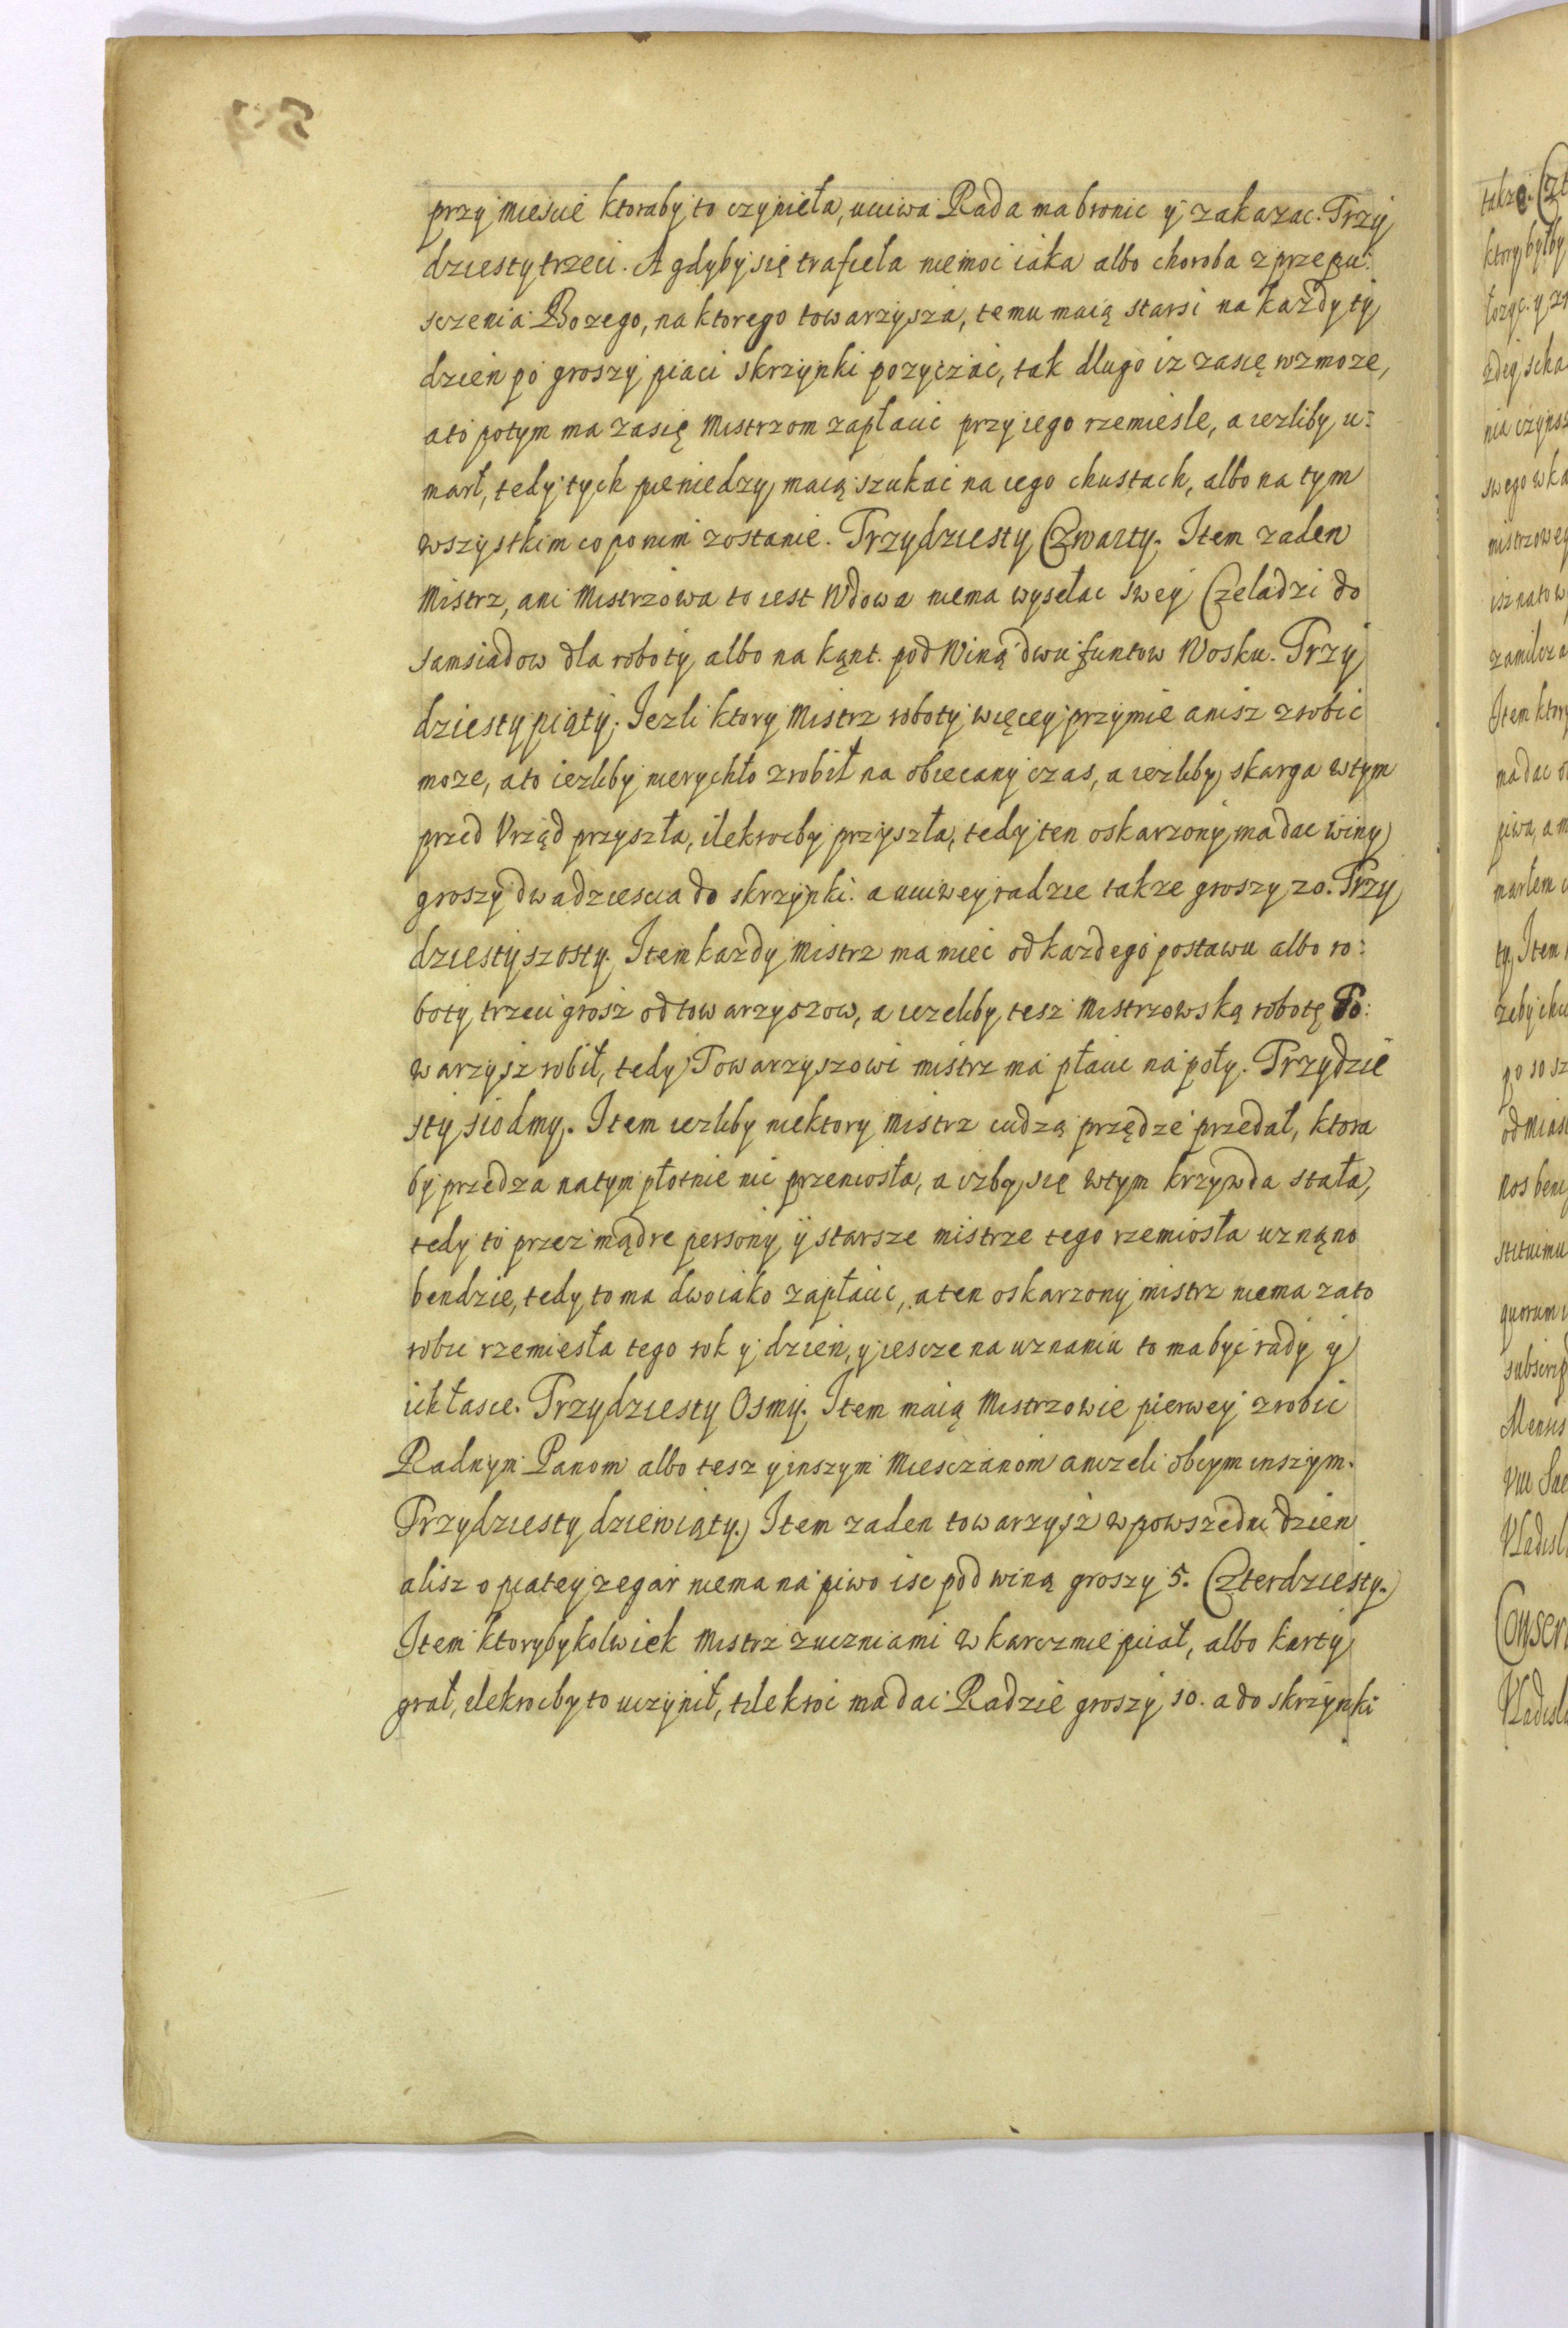 przy miescie ktoraby to czynieła, uciwa Rada ma bronic y zakazac. Trzy
dziesty trzeci. A gdyby się trafieła niemoc iaka albo choroba z przepu:
sczenia Bozego, na ktorego towarzysza, temu maią starsi na kazdy ty
dzien po groszy piaci skrzynki pozyczac, tak dlugo iz zasię wzmoze,
a to potym ma zasię Mistrzom zapłacic przy iego rzemiesle, a iezliby u:
marł, tedy tych pieniedzy maią szukac na iego chustach, albo na tym
wszystkim co po nim zostanie. Trzydziesty Czwarty. Item zaden
Mistrz, ani Mistrzowa to iest Wdowa niema wysełac swey Czeladzi do
samsiadow dla roboty albo na kąnt. pod Winą dwu funtow Wosku. Trzy
dziesty piąty. Iezli ktory Mistrz roboty więcey przymie anisz zrobic
moze, a to iezliby nierychło zrobił na obiecany czas, a iezliby skarga w tym
przed Vrząd przyszła, ilekrocby przyszła, tedy ten oskarzony ma dac winy
groszy dwadziescia do skrzynki. a uciwey radzie takze groszy 20. Trzy
dziesty szosty. Item kazdy Mistrz ma miec od kazdego postawu albo ro:
boty trzeci grosz od towarzyszow, a iezeliby tesz Mistrzowską robotę To:
warzysz robił, tedy Towarzyszowi mistrz ma płacic na poły. Trzydzie
sty siodmy. Item iezliby niektory Mistrz cudzą przędze przedał, ktora
by przedza na tym płotnie nic przeniosła, a izby się w tym krzywda stała,
tedy to przez mądre persony y starsze mistrze tego rzemiosła uznąno
bendzie, tedy to ma dwoiako zapłacic, a ten oskarzony mistrz niema za to
robic rzemiesła tego rok y dzien, y iescze na uznaniu to ma byc rady y
ich łasce. Trzydziesty Osmy. Item maią Mistrzowie pierwey zrobic
Radnym Panom albo tesz y inszym Miesczanom anizeli obcym inszym.
Trzydziesty dziewiąty. Item zaden towarzysz w powszedni dzien
alisz o piatey zegar niema na piwo isc pod winą groszy 5. Czterdziesty.
Item ktorybykolwiek Mistrz z uczniami w karczmie piiał, albo karty
grał, ilekrocby to uczynił, tilekroc ma dac Radzie groszy 10. a do skrzynki
takze. Czt
ktory byłby
nia czynsz
swego wka
mistrzoweg
isz na to w
zamilcza
Item ktory
ma dac o
piwa, a m
marłem
ty Item
zeby iku
po 10 sz
od Mias
Nos beni
stituimu
quorum
subscrip
Mensis
Vladisl
Conserv
Vladisla